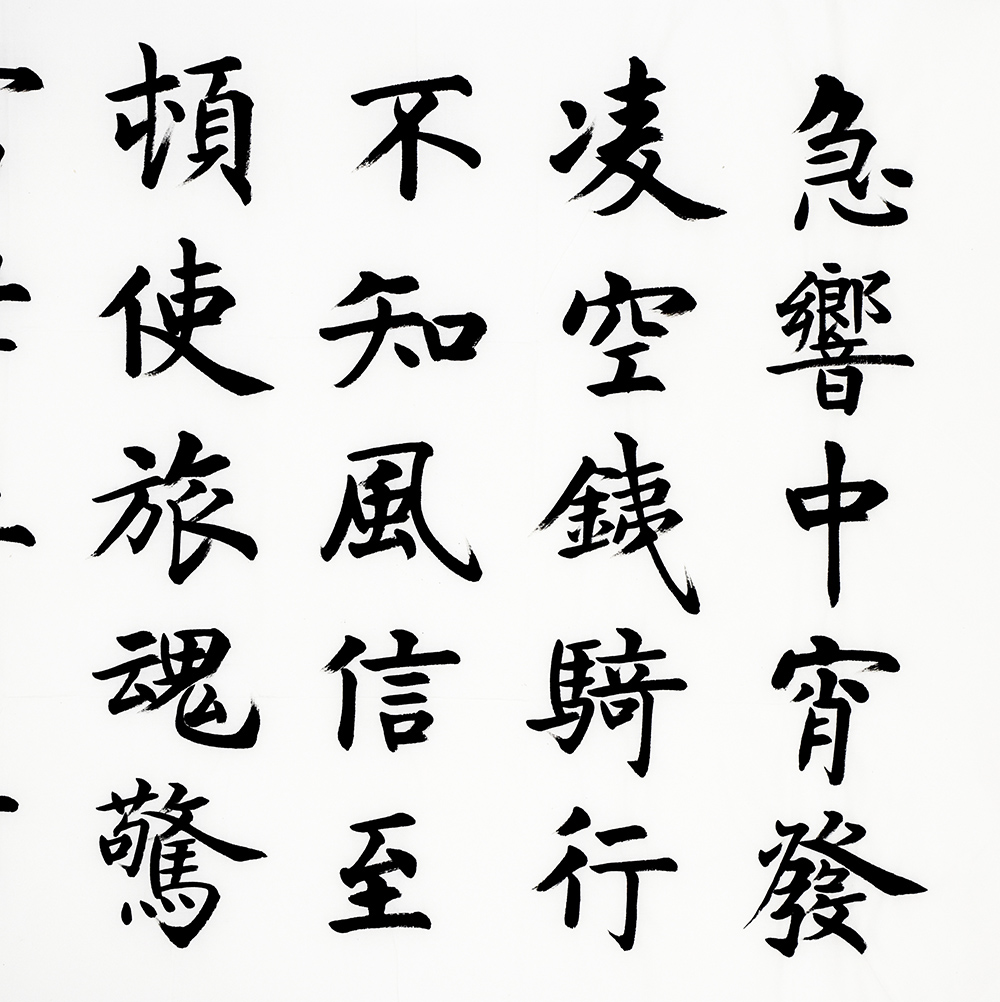 急響中宵發
凌空銕騎行
不知風信至
頓使旅魂驚